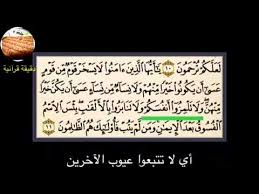 دقيقة قرآنية
لَعَلَّكُمْ تُرْحَمُونَ ١٠ يَٰٓأَيُّهَا ٱلَّذِينَ ءَامَنُوا۟ لَا يَسْخَرْ قَوْمٌ مِّن قَوْمٍ
عَسَىٰٓ أَن يَكُونُوا۟ خَيْرًا مِّنْهُمْ وَلَا نِسَآءٌ مِّن نِّسَآءٍ عَسَىٰٓ أَن يَكُنَّ خَيْرًا
مِّنْهُنَّ وَلَا تَلْمِزُوٓا۟ أَنفُسَكُمْ وَلَا تَنَابَزُوا۟ بِٱلْأَلْقَٰبِ بِئْسَ ٱلِٱسْمُ
ٱلْفُسُوقُ بَعْدَ ٱلْإِيمَٰنِ وَمَن لَّمْ يَتُبْ فَأُو۟لَٰٓئِكَ هُمُ ٱلظَّٰلِمُونَ ١١
أي لا تتبعوا عيوب الآخرين